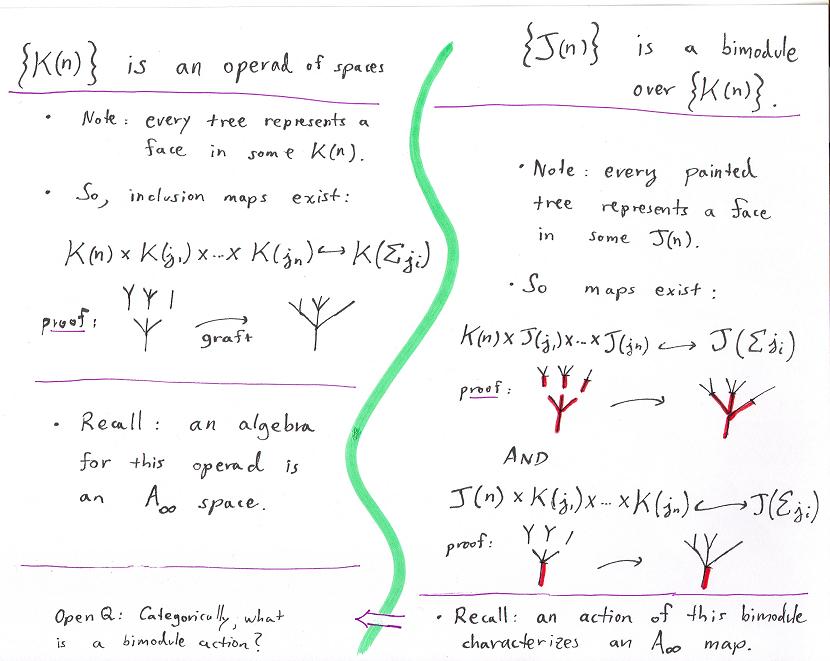 {K(n)} is an operad of spaces
• Note: every tree represents a
face in some K(n).
• So, inclusion maps exist:
K(n) × K(j₁) × ... × K(jₙ) ↪ K(Σjᵢ)
proof:
graft
• Recall: an algebra
for this operad is
an A∞ space.
Open Q: Categorically, what
is a bimodule action?
{J(n)} is a bimodule
over {K(n)}.
• Note: every painted
tree represents a face
in some J(n).
• So maps exist:
K(n) × J(j₁) × ... × J(jₙ) ↪ J(Σjᵢ)
proof:
AND
J(n) × K(j₁) × ... × K(jₙ) ↪ J(Σjᵢ)
proof:
• Recall: an action of this bimodule
characterizes an A∞ map.